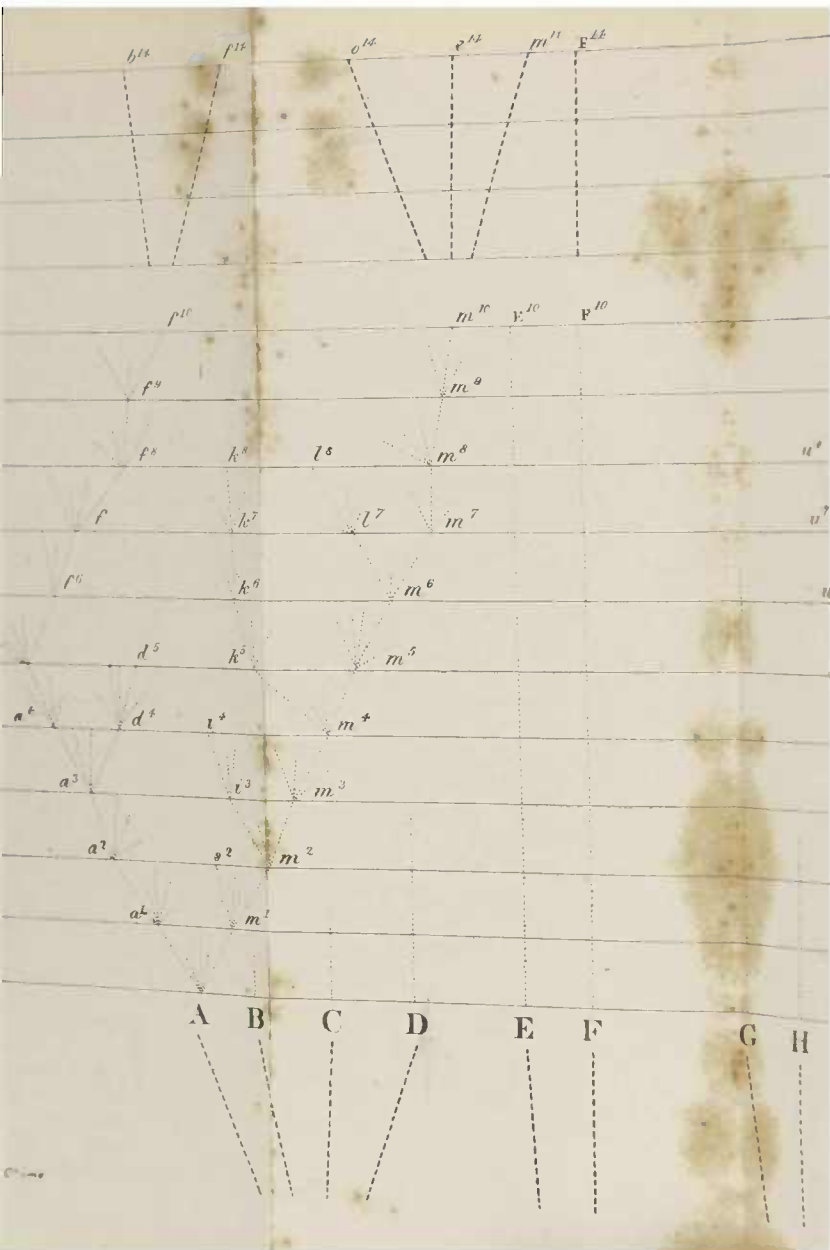 b¹⁴ f¹⁴ o¹⁴ e¹⁴ m¹⁴ F¹⁴
f¹⁰ m¹⁰ E¹⁰ F¹⁰
f⁹ m⁹
f⁸ k⁸ l⁸ m⁸ u⁸
f k⁷ l⁷ m⁷ u⁷
f⁶ k⁶ m⁶ u
d⁵ k⁵ m⁵
a⁴ d⁴ i⁴ m⁴
a³ i³ m³
a² s² m²
a¹ m¹
A B C D E F G H